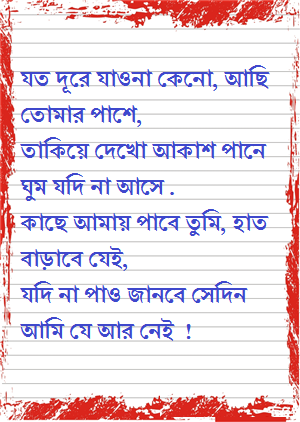 যত দূরে যাওনা কেনো, আছি
তোমার পাশে,
তাকিয়ে দেখো আকাশ পানে
ঘুম যদি না আসে .
কাছে আমায় পাবে তুমি, হাত
বাড়াবে যেই,
যদি না পাও জানবে সেদিন
আমি যে আর নেই !